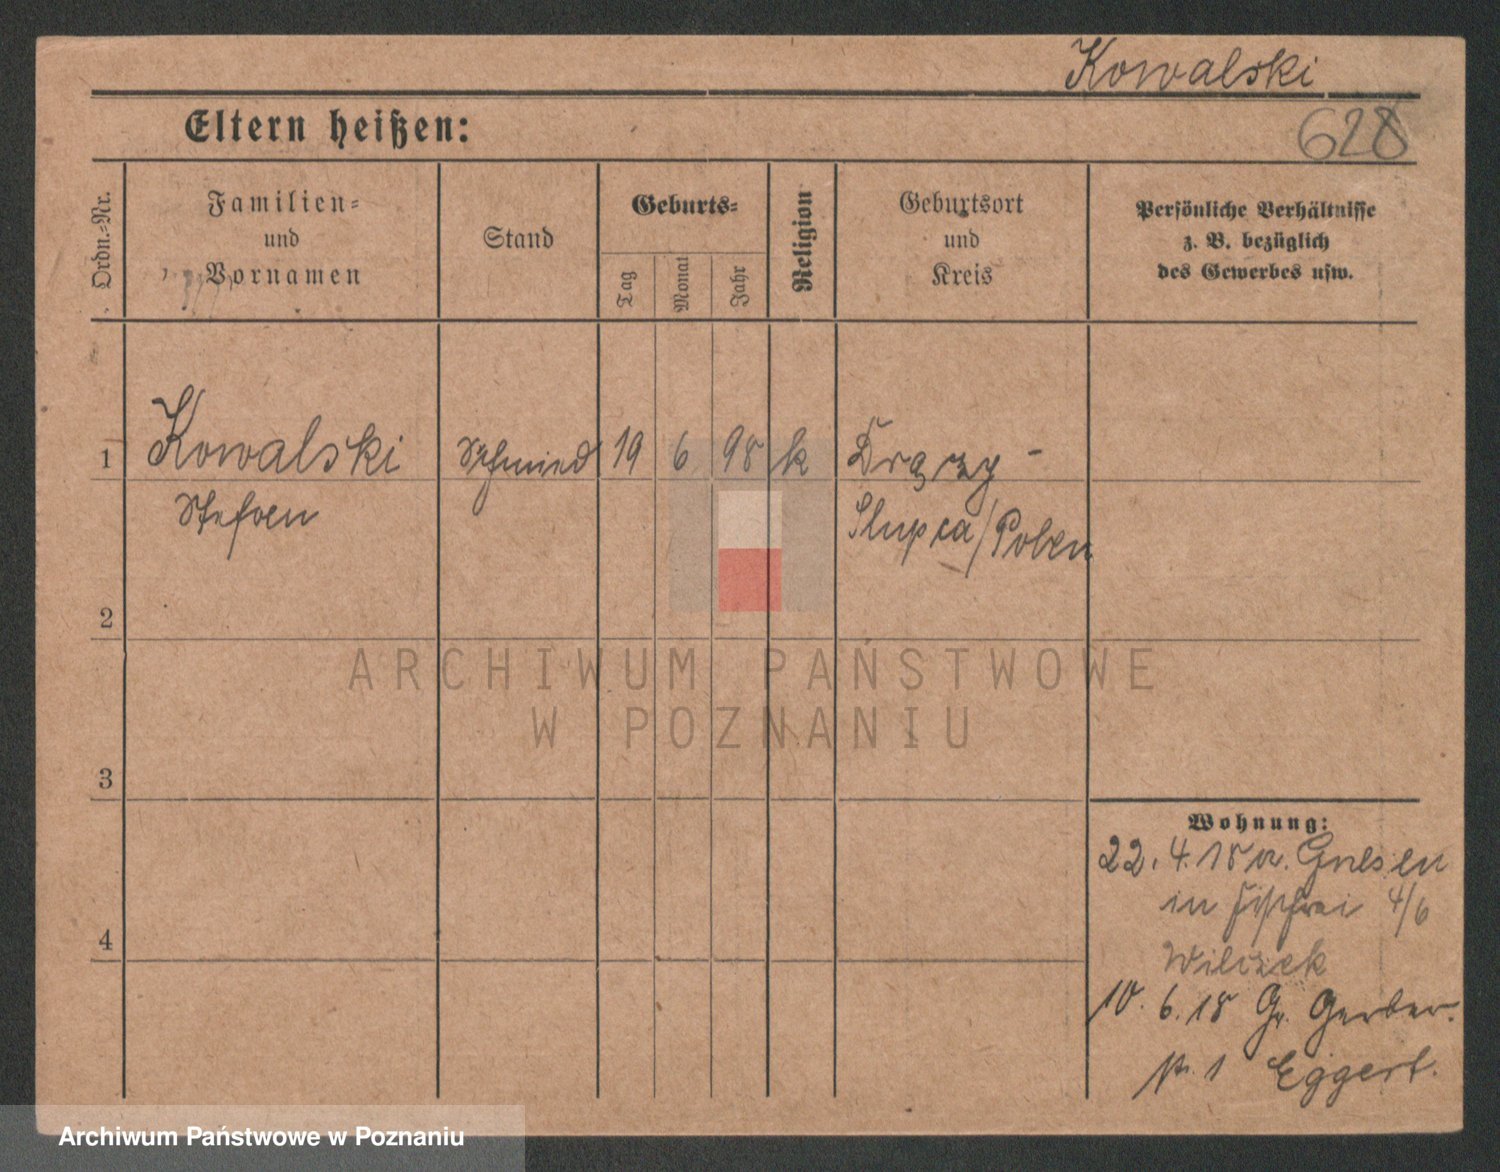 Kowalski
628
Eltern heißen:
Ordn.-Nr.
Familien-
und
Vornamen
Stand
Geburts-
Tag
Monat
Jahr
Religion
Geburtsort
und
Kreis
Persönliche Verhältnisse
z. B. bezüglich
des Gewerbes usw.
1 Kowalski Schmied 19 6 98 k
Stefan
Slupca/Polen
2
3
4
Wohnung:
22. 4. 18 v. Gnesen
in 4/6
Wilczek
10. 6. 18 Gr. Gerber.
1 Eggert.
ARCHIWUM PAŃSTWOWE
W POZNANIU
Archiwum Państwowe w Poznaniu